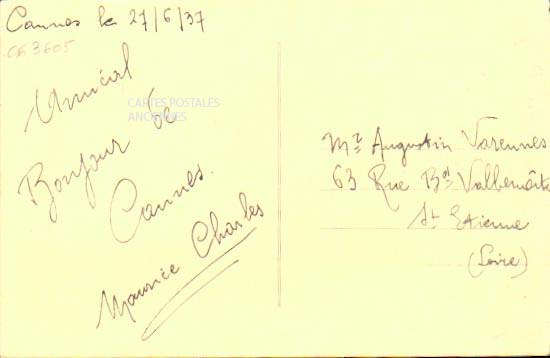 Cannes le 27/6/37
063605
Amical
CARTES POSTALES
ANCIENNES
de
Bonjour
Cannes.
Maurice Charles
Mr Augustin Varennes
63 Rue Bd Valbenoîte
St Etienne
(Loire)